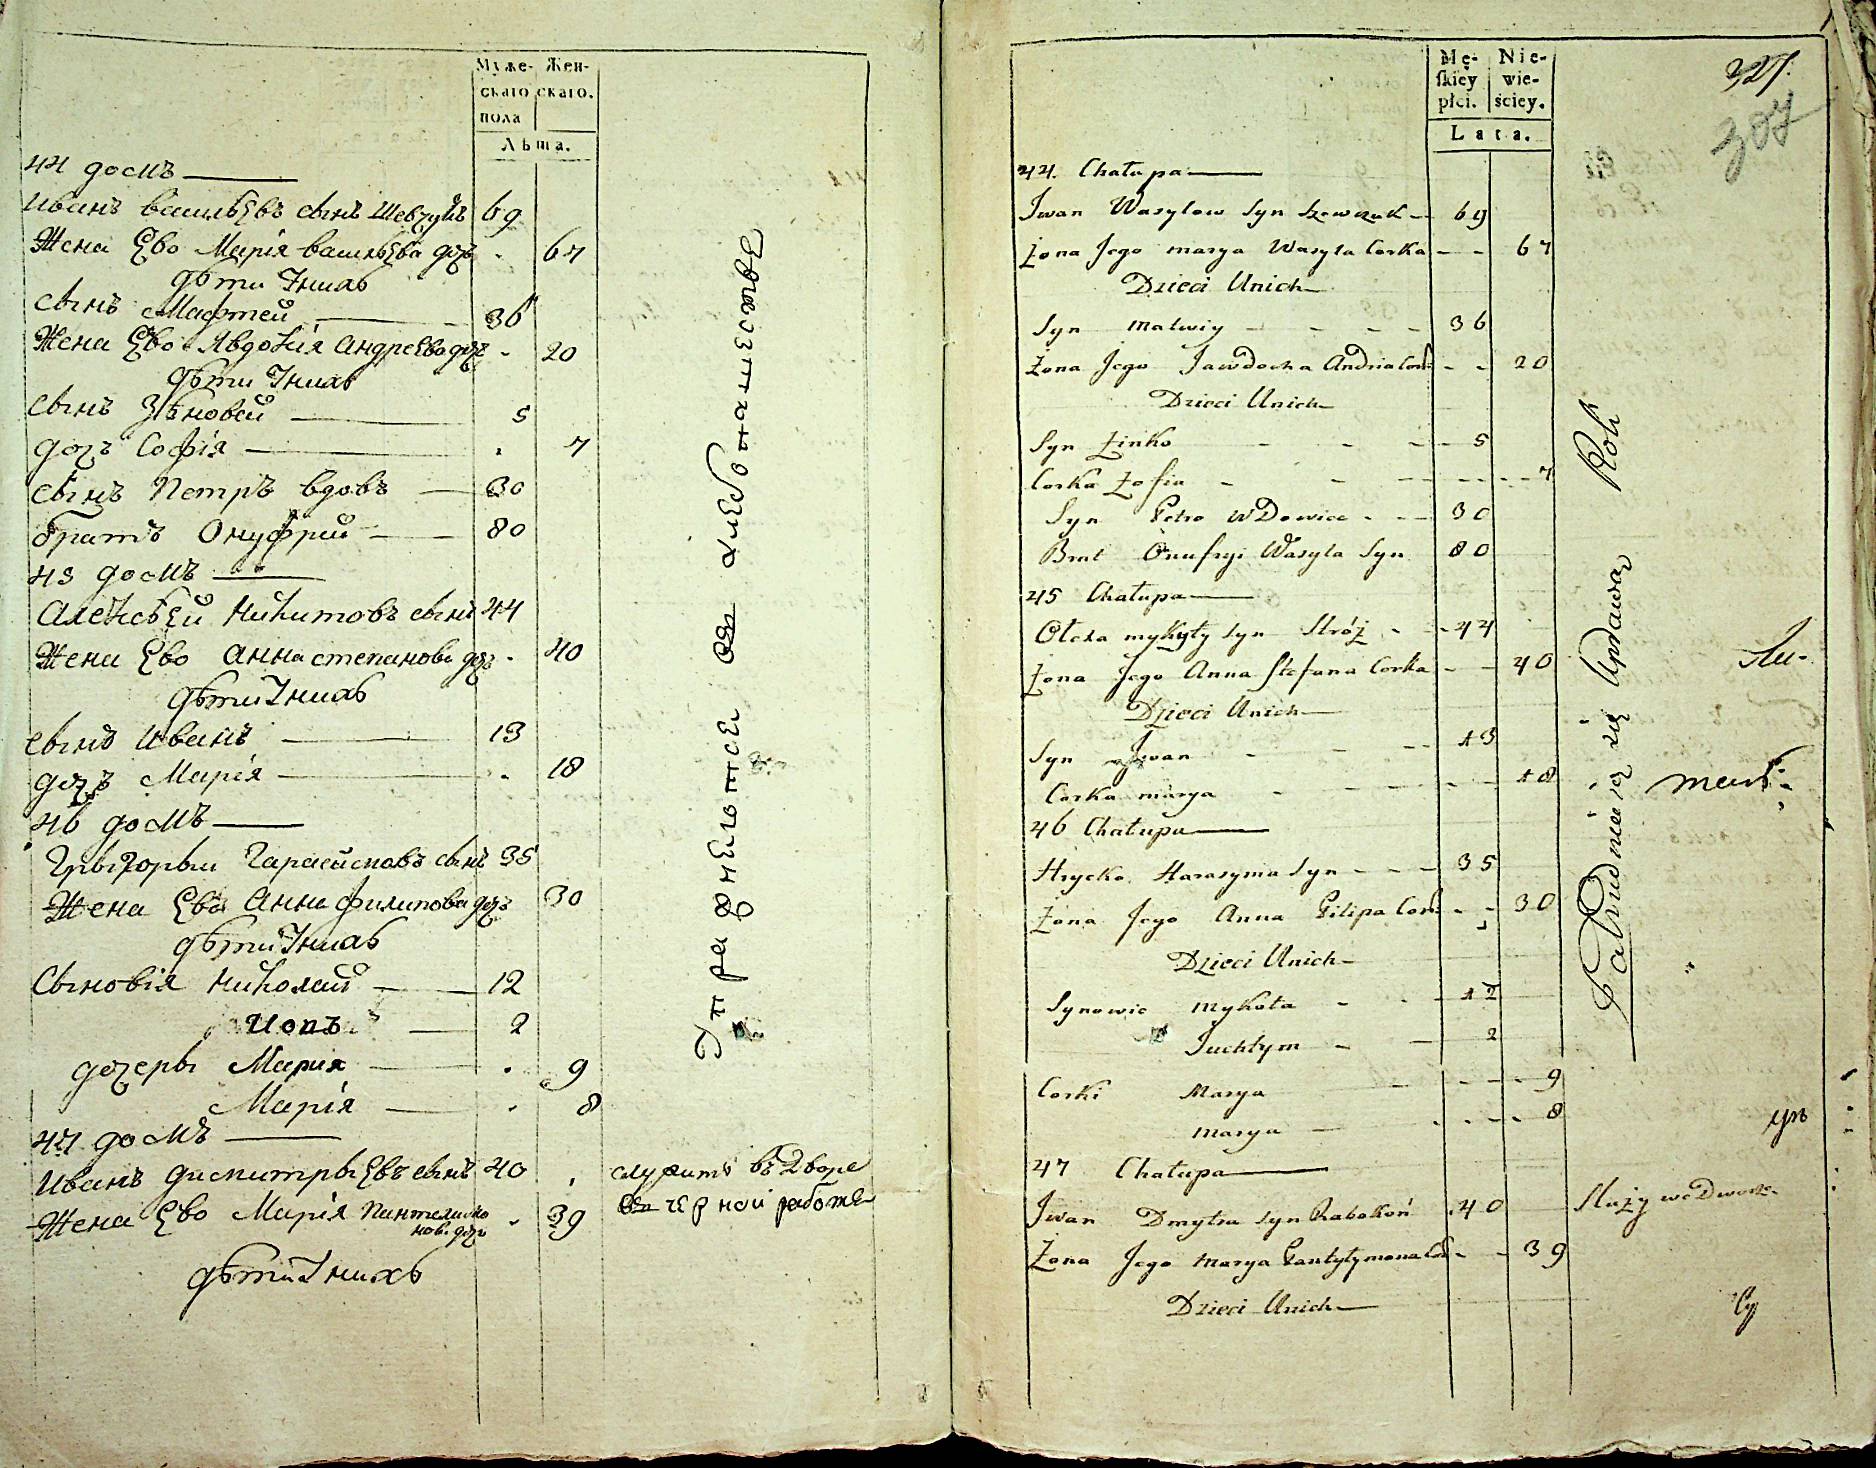 Муже- Жен-
скаго скаго.
пола
Лѣта.
44 домъ
Иванъ васильевъ сынъ Шевчукъ 69
Жена Ево Марія васильева дочь 67
дѣти Унихъ
сынъ Матфей 36
Жена Ево Явдокія Андреева дочь 20
дѣти Унихъ
сынъ Зѣновей 5
дочь Софія 7
сынъ Петръ вдовъ 30
братъ Онуфрий 80
45 домъ
Алексѣей Никитовъ сынъ 44
Жена Ево Анна степанова дочь 40
дѣти Унихъ
сынъ Иванъ 13
дочь Марія 18
46 домъ
Грыгорый Гарасимовъ сынъ 35
Жена Ево Анна филипова дочь 30
дѣти Унихъ
Сыновія Николай 12
2
дочеры Мария 9
Марія 8
47 домъ
Иванъ димитрыевъ сынъ 40
служитъ въ Дворе
Жена Ево Марія Пантелимо
нова дочь 39
черной работе
дѣти Унихъ
Упражнеются хлебопашеством
Mę- Nie-
skiey wie-
płci. ściey.
Lata.
327.
307
44. Chałupa
Iwan Wasylow Syn Szewczuk 69
Żona Jego marya Wasyla Corka 67
Dzieci Unich
Syn matwiy 36
Żona Jego Jawdocha Andria Cork 20
Dzieci Unich
Syn Zinko 5
Corka Zofia 7
Syn Petro wDowiec 30
Brat Onufryi Wasyla Syn 80
45 Chałupa
Olexa mykyty Syn Stróż 44
Żona Jego Anna Stefana Corka 40
Dzieci Unich
Syn Iwan 13
Corka marya 18
46 Chałupa
Hrycko Harasyma Syn 35
Żona Jego Anna Filipa Cork 30
Dzieci Unich
Synowie mykoła 12
Juchtym 2
Corki Marya 9
marya 8
47 Chałupa
Iwan Dmytra Syn Rabokoń 40
Służy we Dworze
Żona Jego marya Pantylymona Cor 39
Dzieci Unich
Zatrudniaią się Uprawą Roli